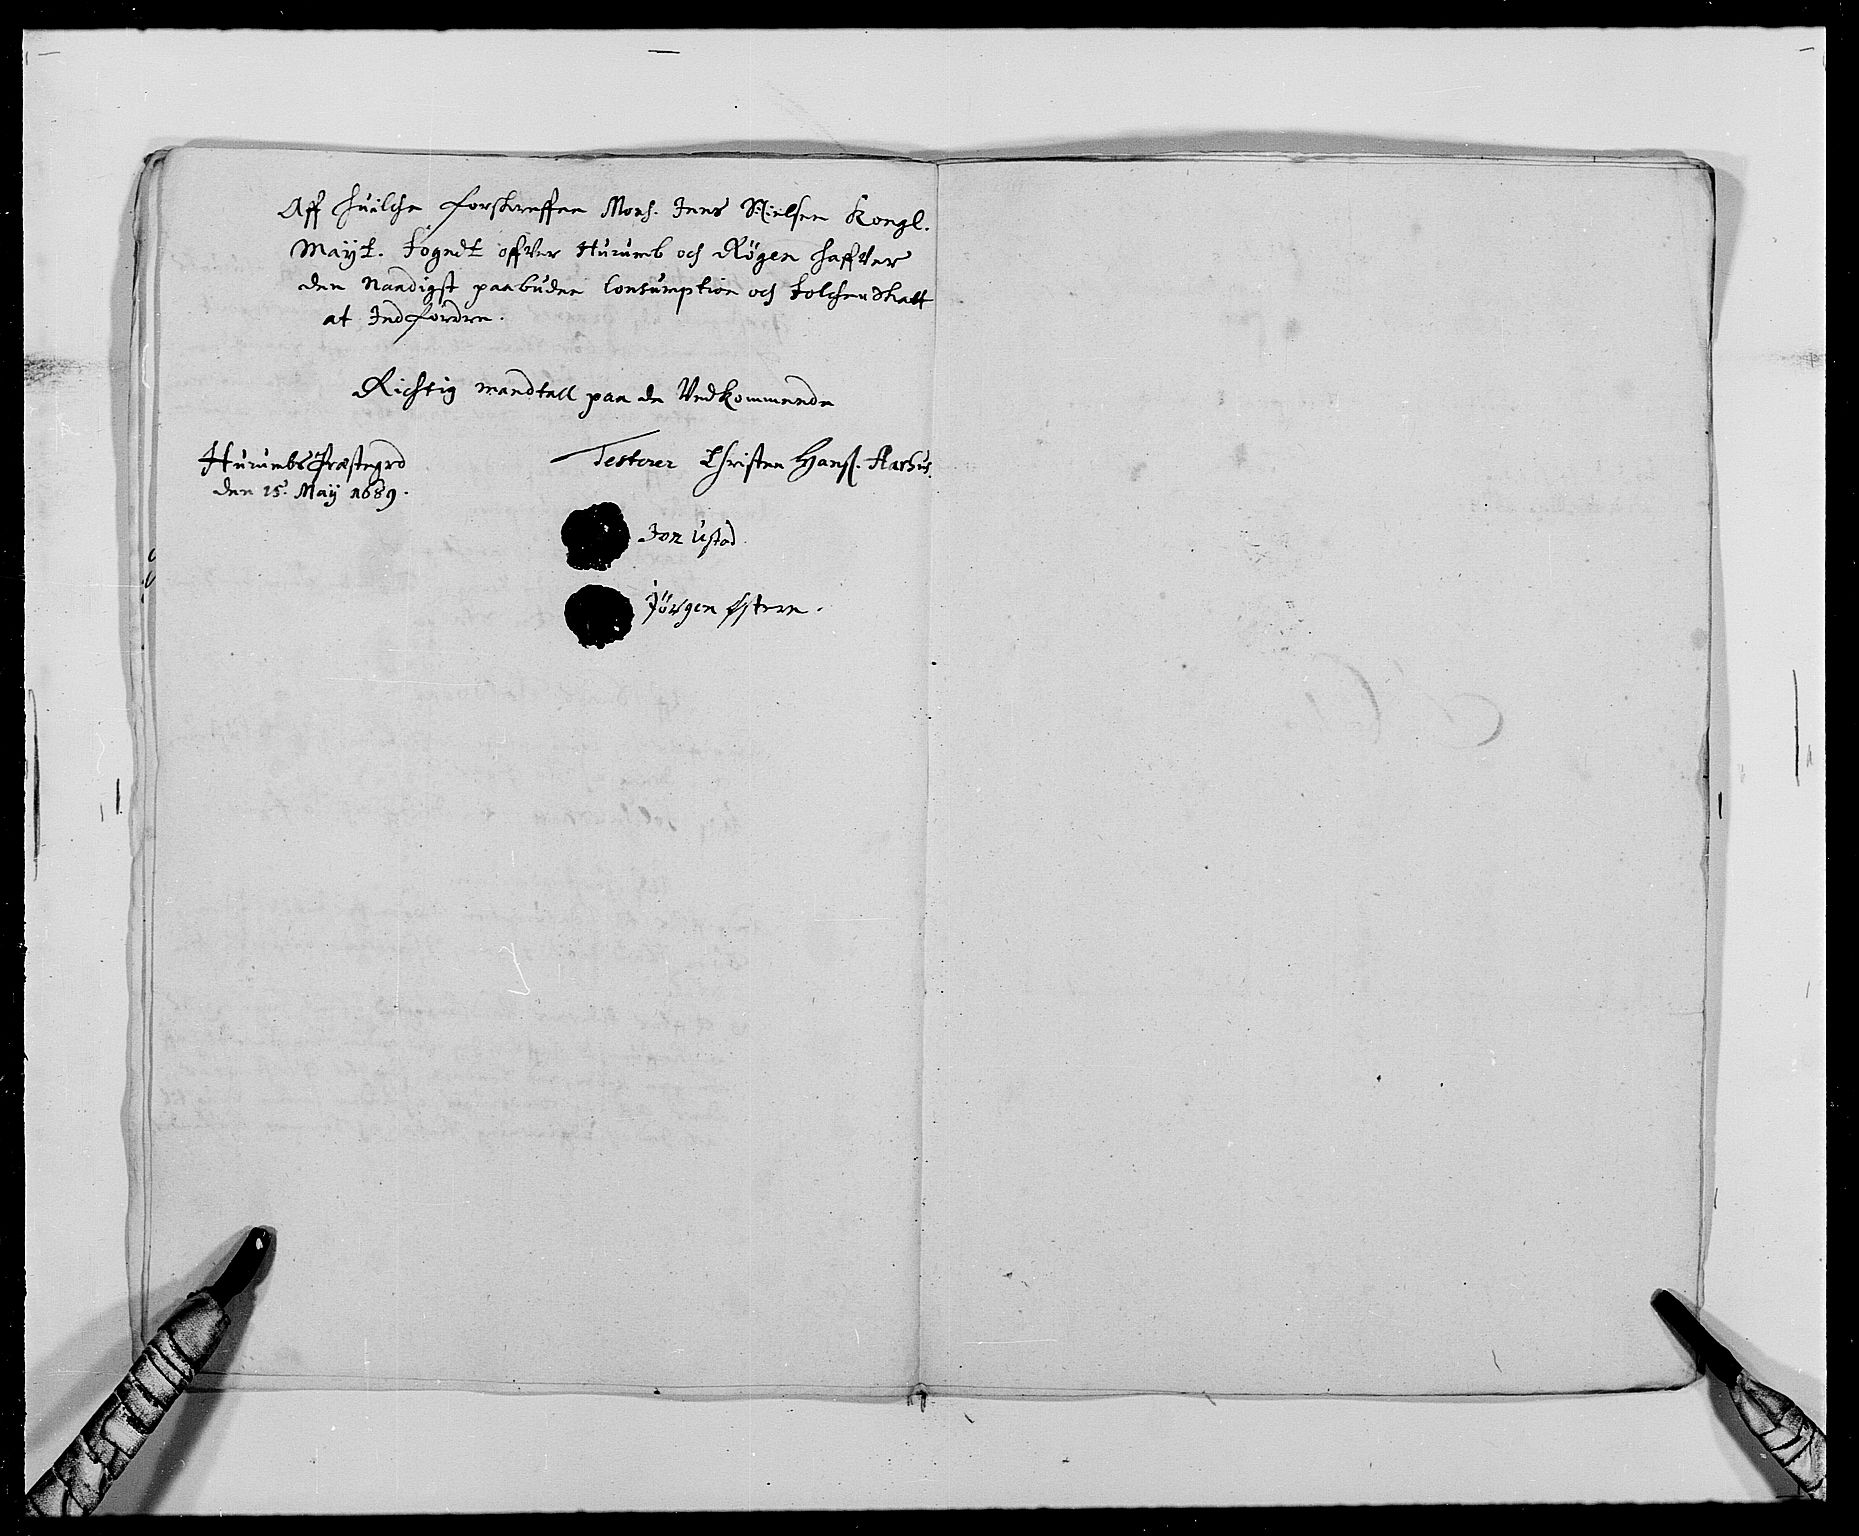 Aff huilche forskreffne Mons. Jens Nielsen Kongl.
Mayt. Fogedt offver Hurumb och Røgen haffver
den Naadigst paabudne Consumption och Folcheskatt
at Indfordre.
Richtig mandtall paa de Vedkommende
Hurumbs Præstegrd
den 15. May 1689.
Testerer Christen Hanss. Aarhus.
Jon Ustad
Jörgen Østern.